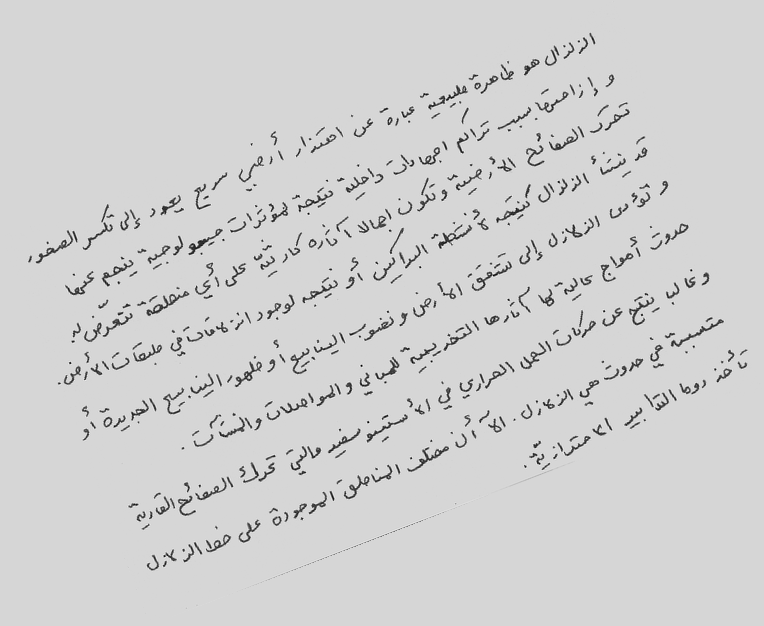 الزلزال هو ظاهرة طبيعية عبارة عن اهتزاز أرضي سريع يعود إلى تكسر الصخور
و إزاحتها بسبب تراكم اجهادات داخلية نتيجة لمؤثرات جيولوجية ينجم عنها
تحرك الصفائح الأرضية وتكون اجمالا آثاره كارثيّة على أي منطقة تتعرّض له
قد ينشأ الزلزال كنتيجة لأنشطة البراكين أو نتيجه لوجود انزلاقات في طبقات الأرض.
و تؤدى الزلازل إلى تشقق الأرض و نضوب الينابيع أو ظهور الينابيع الجديدة أو
حدوث أمواج عالية لها آثارها التخريبية للمباني والمواصلات والمنشآت .
و غالبا ينتج عن حركات الحمل الحراري في الأستينو سفير والتي تحرك الصفائح القارية
متسببة في حدوث هي الزلازل . الآ أن مختلف المناطق الموجودة على خط الزلازل
تأخذ دوما التدابير الاحترازيّة .